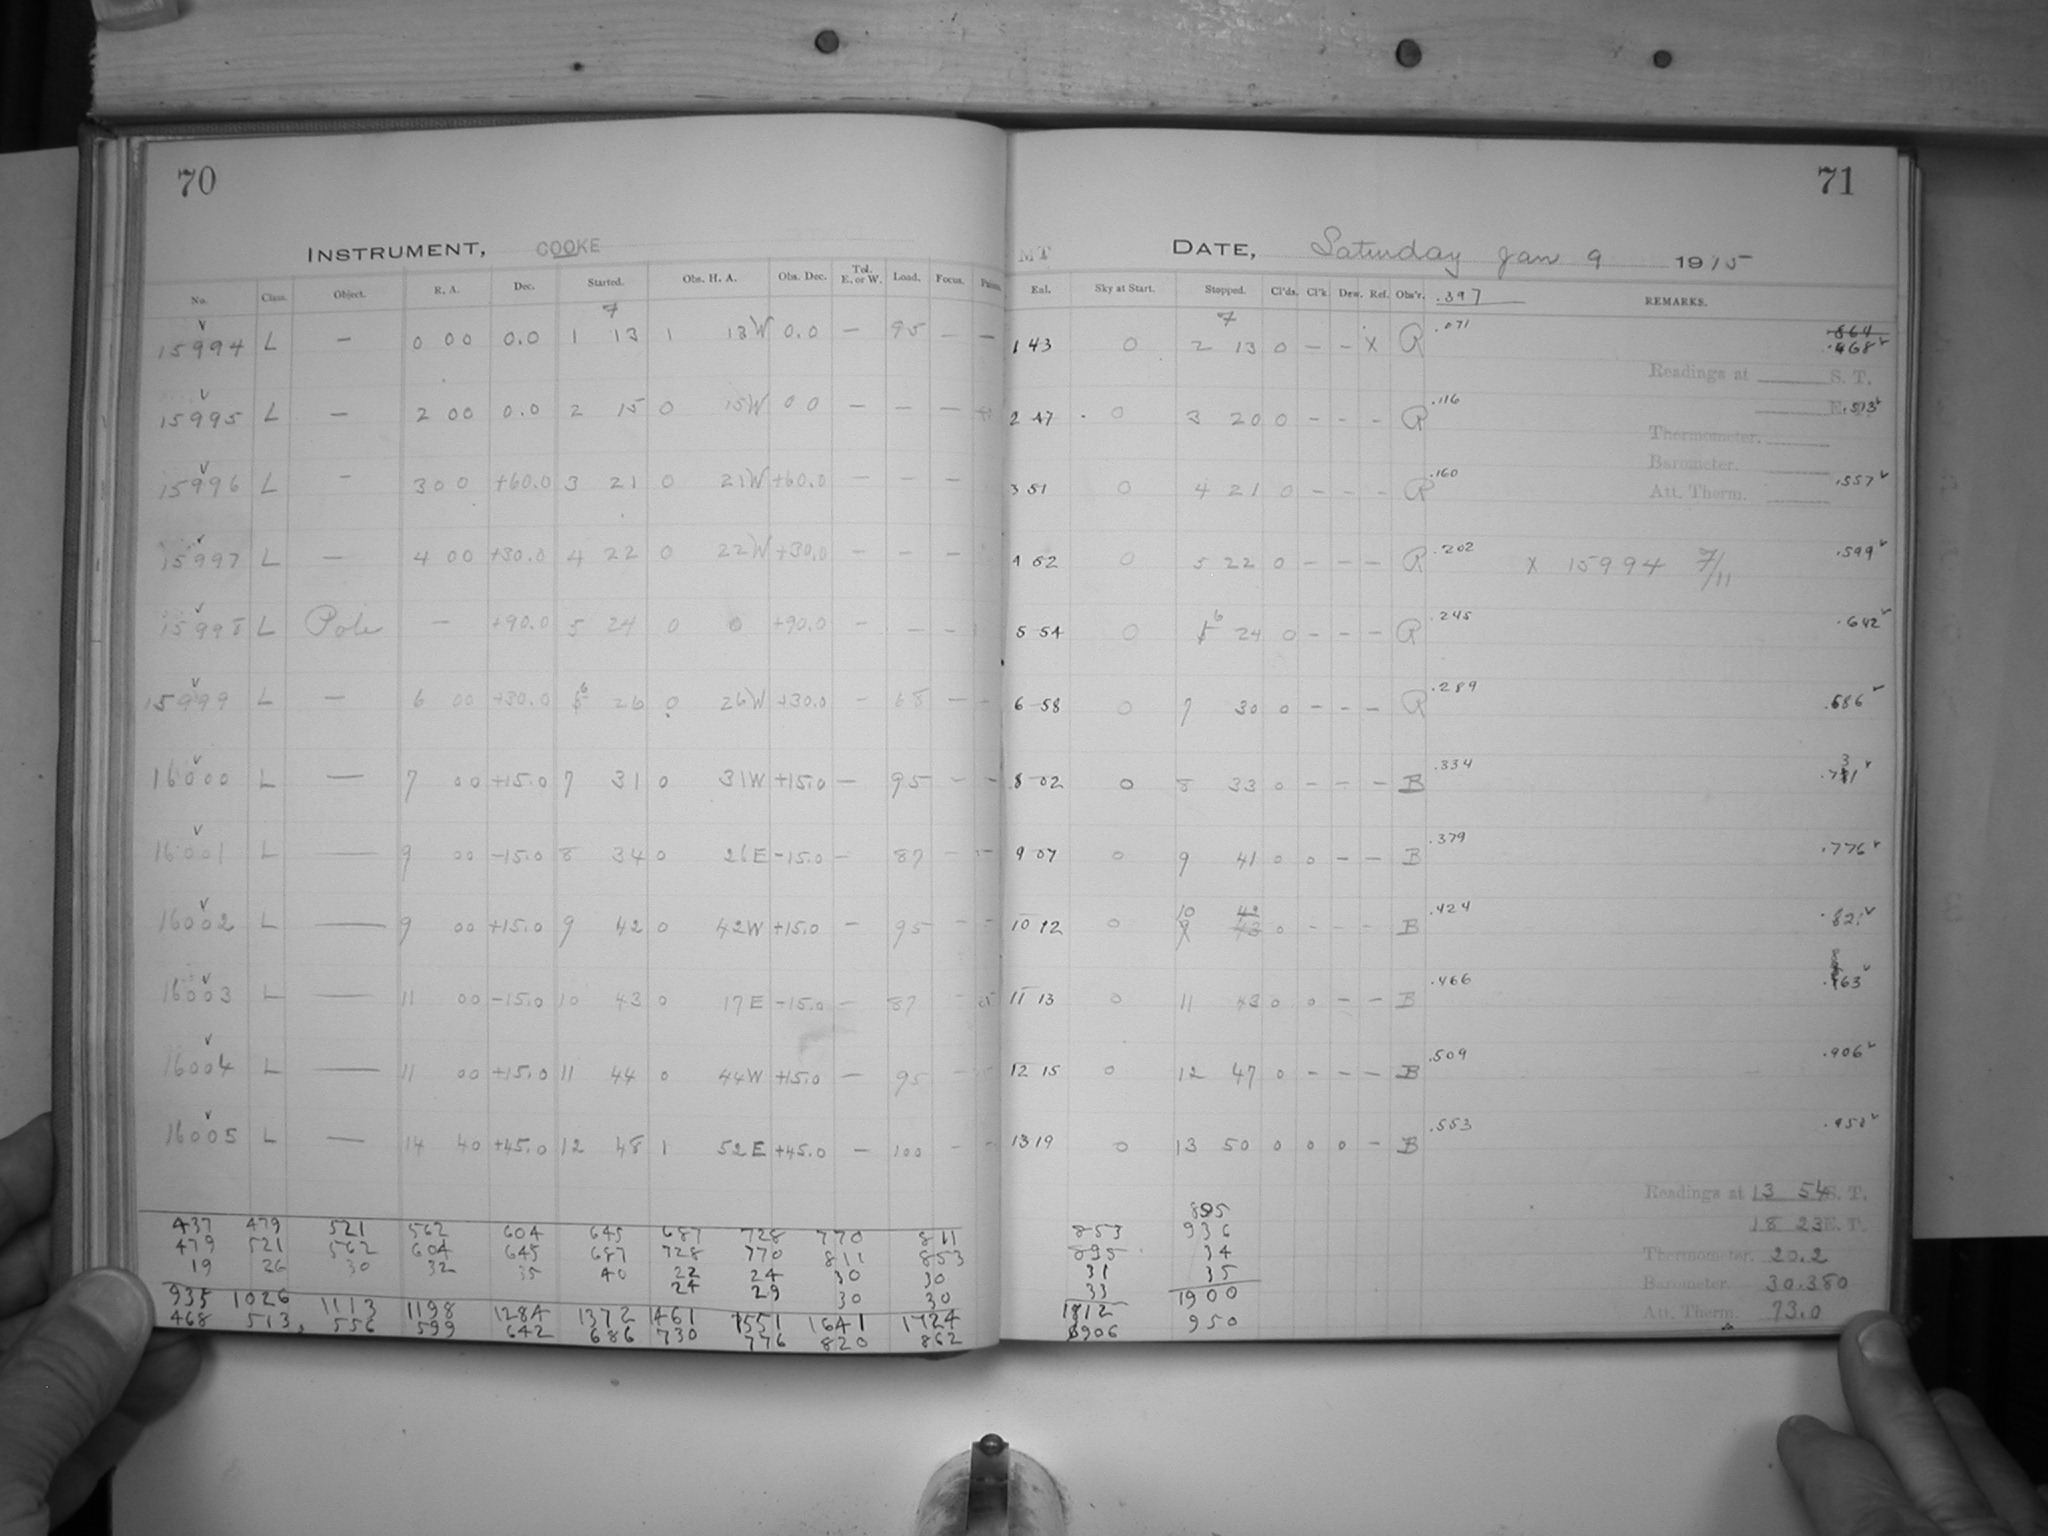 70
INSTRUMENT, COOKE
No. Class. Object. R. A. Dec. Started. Obs. H. A. Obs. Dec. Tel. E. or W. Load. Focus.
7
15994 L — 0 00 0.0 1 13 1 13W 0.0 — 95 — —
15995 L — 2 00 0.0 2 15 0 15W 0 0 — — —
15996 L - 3 0 0 +60.0 3 21 0 21W +60.0 — — —
15997 L — 4 00 +30.0 4 22 0 22W +30.0 — — —
15998 L Pole — +90.0 5 24 0 0 +90.0 — — —
6
15999 L — 6 00 +30.0 26 0 26W +30.0 — 68 — -
16000 L — 7 00 +15.0 7 31 0 31W +15.0 — 95 — -
16001 L — 9 00 -15.0 8 34 0 26E -15.0 — 87 - —
16002 L — 9 00 +15.0 9 42 0 42W +15.0 — 95 - -
16003 L — 11 00 -15.0 10 43 0 17E -15.0 — 87 -
16004 L — 11 00 +15.0 11 44 0 44W +15.0 — 95 -
16005 L — 14 40 +45.0 12 48 1 52E +45.0 — 100 - -
437 479 521 562 604 645 687 728 770 811
479 521 562 604 645 687 728 770 811 853
19 26 30 32 35 40 22 24 30 30
24 29 30 30
935 1026 1113 1198 1284 1372 1461 1551 1641 1724
468 513 556 599 642 686 730 776 820 862
71
MT DATE, Saturday Jan 9 1915
Eal. Sky at Start. Stopped. Cl'ds. Cl'k. Dew. Ref. Obs'r. .397 REMARKS.
7 .071 .864
1 43 0 2 13 0 — — X R .468
Readings at S. T.
2 47 0 3 20 0 — - - R .116 .513
Thermometer.
Barometer.
3 51 0 4 21 0 - - - R .160 .557
Att. Therm.
4 52 0 5 22 0 - — — R .202 X 15994 7/11 .599
6
5 54 0 24 0 - - — R .245 .642
6 58 0 7 30 0 - - — R .289 .686
3
8 02 0 8 33 0 - - — B .334
9 07 0 9 41 0 0 — — B .379 .776
10 42
10 12 0 9 43 0 - - - B .424
11 13 0 11 43 0 0 — — B .466
12 15 0 12 47 0 - - — B .509 .906
13 19 0 13 50 0 0 0 - B .553
895
853 936
895 34
31 35
33 1900
1812 950
906
Readings at 13 54 S. T.
18 23 E. T.
Thermometer. 20.2
Barometer. 30.380
Att. Therm. 73.0